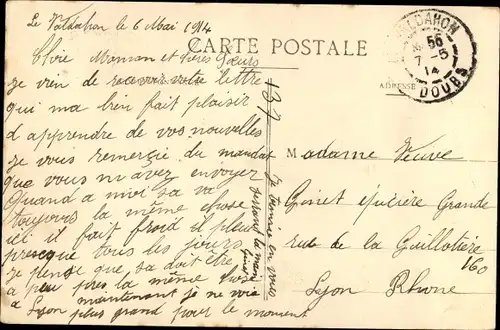 Le Valdahon le 6 Mai 1914
CARTE POSTALE
VALDAHON
56
7-5
14
DOUBS
ADRESSE
137
Chère Maman et chères Sœurs
je vien de recevoir votre lettre
qui ma bien fait plaisir
d apprendre de vos nouvelles
je vous remerçie du mandat
que vous m avez envoyer
Quand a moi sa va
toujours la même chose
ici il fait froid il pleut
presque tous les jours
je pense que sa doit être
a peu près la même chose
a Lyon maintenant je ne vois
plus grand pour le moment
je termine en vous
serrant la main
Madame Veuve
Ginet épicière Grande
rue de la Guillotière
160
Lyon Rhône